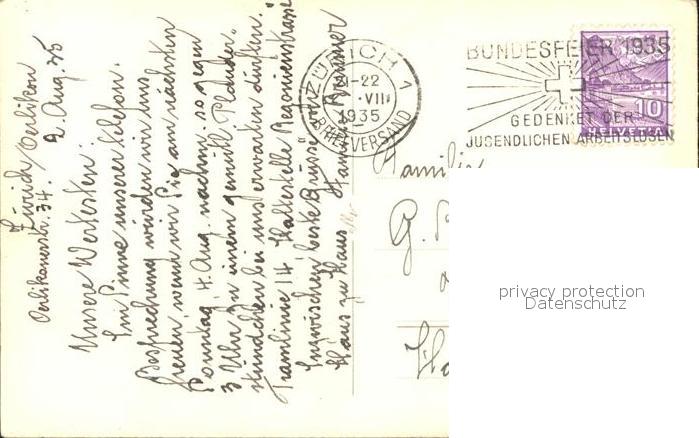 Zürich/Oerlikon
Oerlikonerstr. 34. 2. Aug. 35
Unsere Wertesten.
Im Sinne unserer telefon.
Besprechung würden wir uns
freuen, wenn wir Sie am nächsten
Sonntag, 4. Aug. nachm. so gegen
3 Uhr zu einem gemütl. Plauder-
stündchen bei uns erwarten dürften.
Tramlinie 14 Haltestelle Regonienstrasse
Inzwischen beste Grüsse von
Haus zu Haus Familie Brunner
ZÜRICH 1
-22
VIII
1935
BRIEFVERSAND
BUNDESFEIER 1935
GEDENKET DER
JUGENDLICHEN ARBEITSLOSEN
10
HELVETIA
Familie
G.
privacy protection
Datenschutz